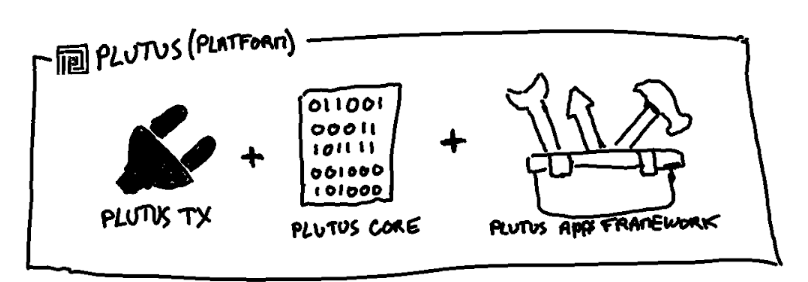 PLUTUS (PLATFORM)
011001
00011
101111
001000
101000
+
+
PLUTUS TX
PLUTUS CORE
PLUTUS APPS FRAMEWORK